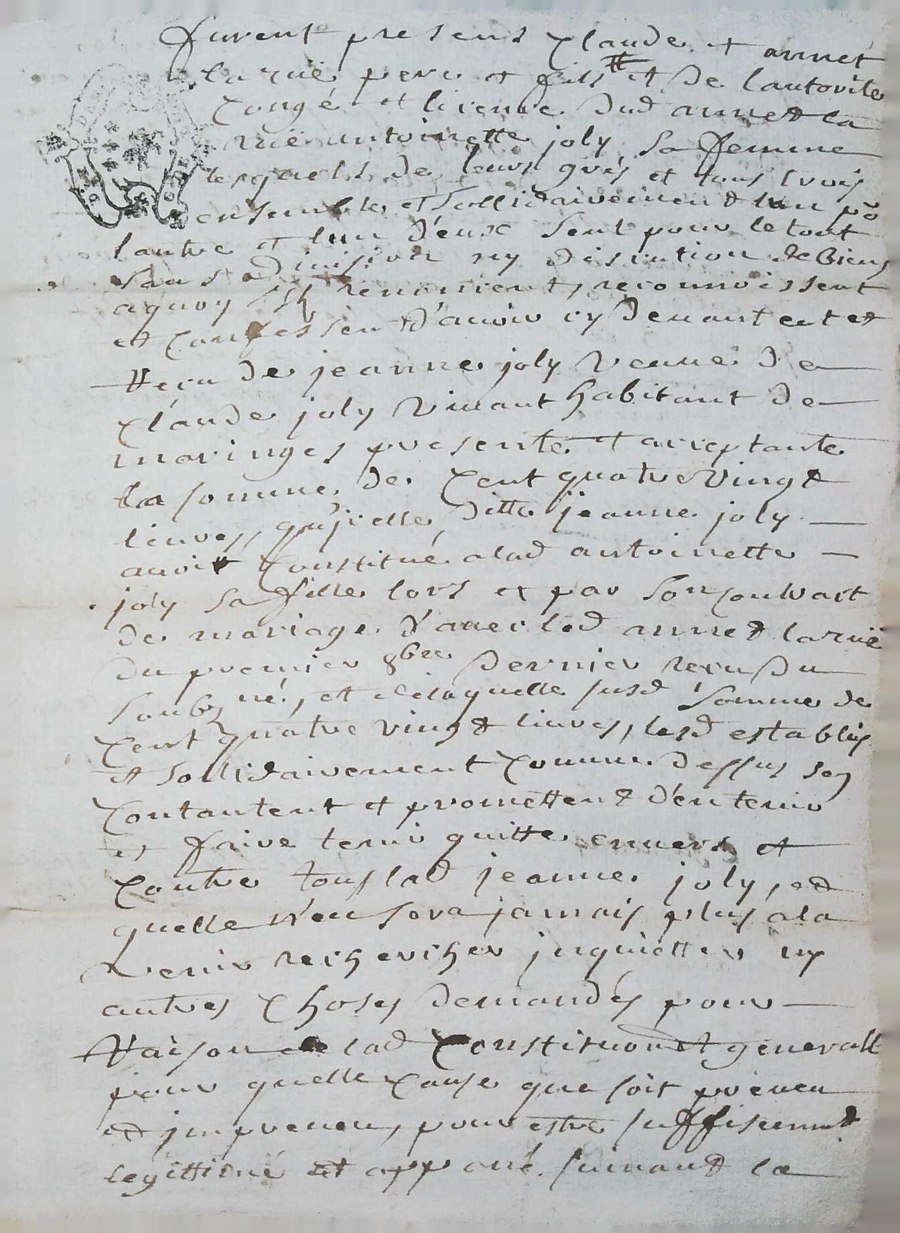 furent presens Claude et annet
la ruë pere et fils et de lautorite
Congé et licence dud annet la
ruë antoinette joly sa femme
lesquels de leurs grés et tous trois
ensemble et sollidairement lun po
lautre et lun d'eux seul pour le tout
sans division ny discution de biens
a quoy ils renoncent, reconnoissent
et confessent d'avoir cy devant eu et
Receu de jeanne joly veuve de
Claude joly vivant habitant de
maringes presente et acceptante
la somme de Cent quatre vingt
livres, qu'icelle ditte jeanne joly
avoit Constitué a lad antoinette
joly sa fille lors et par son contract
de mariage d'avec led annet la ruë
du premier 8bre dernier receu du
soubsné, et de laquelle susd somme de
Cent quatre vingt livres, lesd establis
et sollidairement comme dessus se
Contantent et promettent d'en tenir
et faire tenir quitte envers et
Contre tous lad jeanne joly, et
quelle n'en sera jamais plus a la
venir rechercher inquietter ny
autres choses demandés pour
Raison de lad Constituon et generall
pour quelle cause que soit preveu
et impreveu, pour estre suffisemt
legittimé et appané suivant la